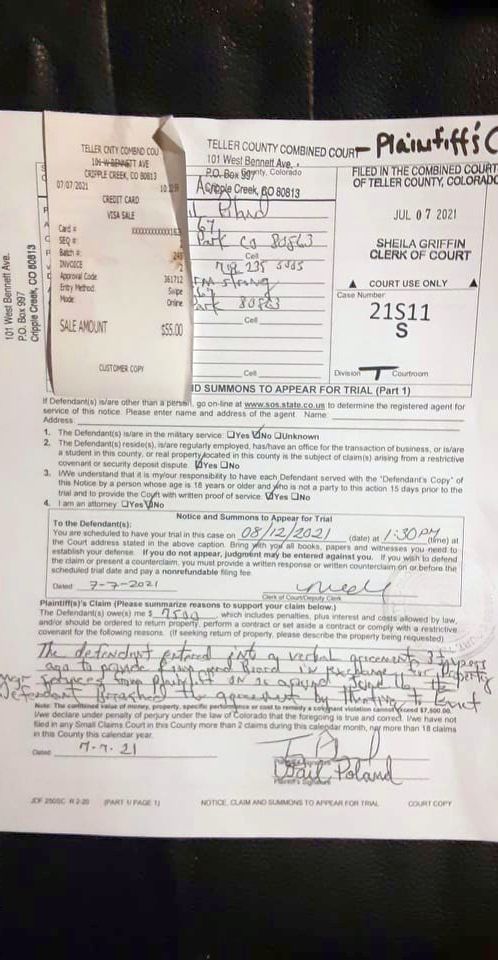 TELLER COUNTY COMBINED COURT - Plaintiff's C
101 West Bennett Ave.
P.O. Box 997
Cripple Creek, CO 80813
FILED IN THE COMBINED COURT
OF TELLER COUNTY, COLORADO
JUL 07 2021
SHEILA GRIFFIN
CLERK OF COURT
▲ COURT USE ONLY ▲
Case Number
21S11
S
Division T Courtroom
TELLER CNTY COMBND COU
101 W BENNETT AVE
CRIPPLE CREEK, CO 80813
07/07/2021
CREDIT CARD
VISA SALE
Card #
SEQ #:
Batch #:
INVOICE 2
Approval Code 361712
Entry Method: Swipe
Mode: Online
SALE AMOUNT $55.00
CUSTOMER COPY
101 West Bennett Ave.
P.O. Box 997
Cripple Creek, CO 80813
Poland
67
Park CO 80863
Cell
719 235 5005
strong
67
80863
Cell
Cell
D SUMMONS TO APPEAR FOR TRIAL (Part 1)
If Defendant(s) is/are other than a person, go on-line at www.sos.state.co.us to determine the registered agent for
service of this notice. Please enter name and address of the agent. Name
Address
1. The Defendant(s) is/are in the military service: ☐Yes ☑No ☐Unknown
2. The Defendant(s) reside(s), is/are regularly employed, has/have an office for the transaction of business, or is/are
a student in this county, or real property located in this county is the subject of claim(s) arising from a restrictive
covenant or security deposit dispute. ☑Yes ☐No
3. I/We understand that it is my/our responsibility to have each Defendant served with the "Defendant's Copy" of
this Notice by a person whose age is 18 years or older and who is not a party to this action 15 days prior to the
trial and to provide the Court with written proof of service. ☑Yes ☐No
4. I am an attorney ☐Yes ☑No
Notice and Summons to Appear for Trial
To the Defendant(s):
You are scheduled to have your trial in this case on 08/12/2021 (date) at 1:30PM (time) at
the Court address stated in the above caption. Bring with you all books, papers and witnesses you need to
establish your defense. If you do not appear, judgment may be entered against you. If you wish to defend
the claim or present a counterclaim, you must provide a written response or written counterclaim on or before the
scheduled trial date and pay a nonrefundable filing fee.
Dated 7-7-2021
Clerk of Court/Deputy Clerk
Plaintiff(s)'s Claim (Please summarize reasons to support your claim below.)
The Defendant(s) owe(s) me $ 7500 which includes penalties, plus interest and costs allowed by law,
and/or should be ordered to return property, perform a contract or set aside a contract or comply with a restrictive
covenant for the following reasons. (If seeking return of property, please describe the property being requested)
The defendant entered into a verbal agreement 3½ years
ago to provide Room and Board in exchange for Property
services from plaintiff on
Defendant Breached the agreement by threating to Evict
Note: The combined value of money, property, specific performance or cost to remedy a covenant violation cannot exceed $7,500.00.
I/we declare under penalty of perjury under the law of Colorado that the foregoing is true and correct. I/we have not
filed in any Small Claims Court in this County more than 2 claims during this calendar month, nor more than 18 claims
in this County this calendar year.
Dated: 7-7-21
Gail Poland
Plaintiff's Signature
JDF 250SC R 2-20 (PART 1/ PAGE 1) NOTICE, CLAIM AND SUMMONS TO APPEAR FOR TRIAL COURT COPY